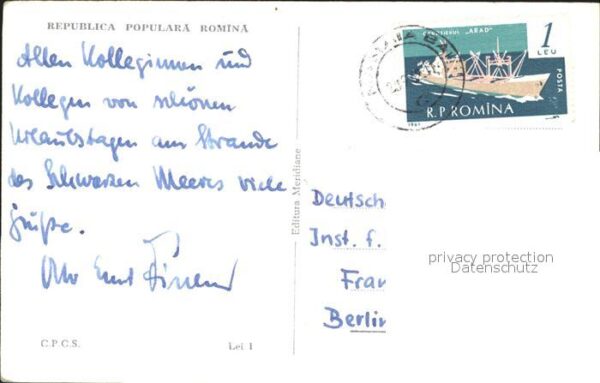 REPUBLICA POPULARĂ ROMÎNĂ
Allen Kolleginnen und
Kollegen von schönen
Urlaubstagen am Strande
des Schwarzen Meeres viele
Grüße.
Ernst
CARGOUL "ARAD"
1
LEU
POSTA
R.P.ROMÎNA
Editura Meridiane
Deutsch
Inst. f.
Fran
Berlin
privacy protection
Datenschutz
C.P.C.S.
Lei 1